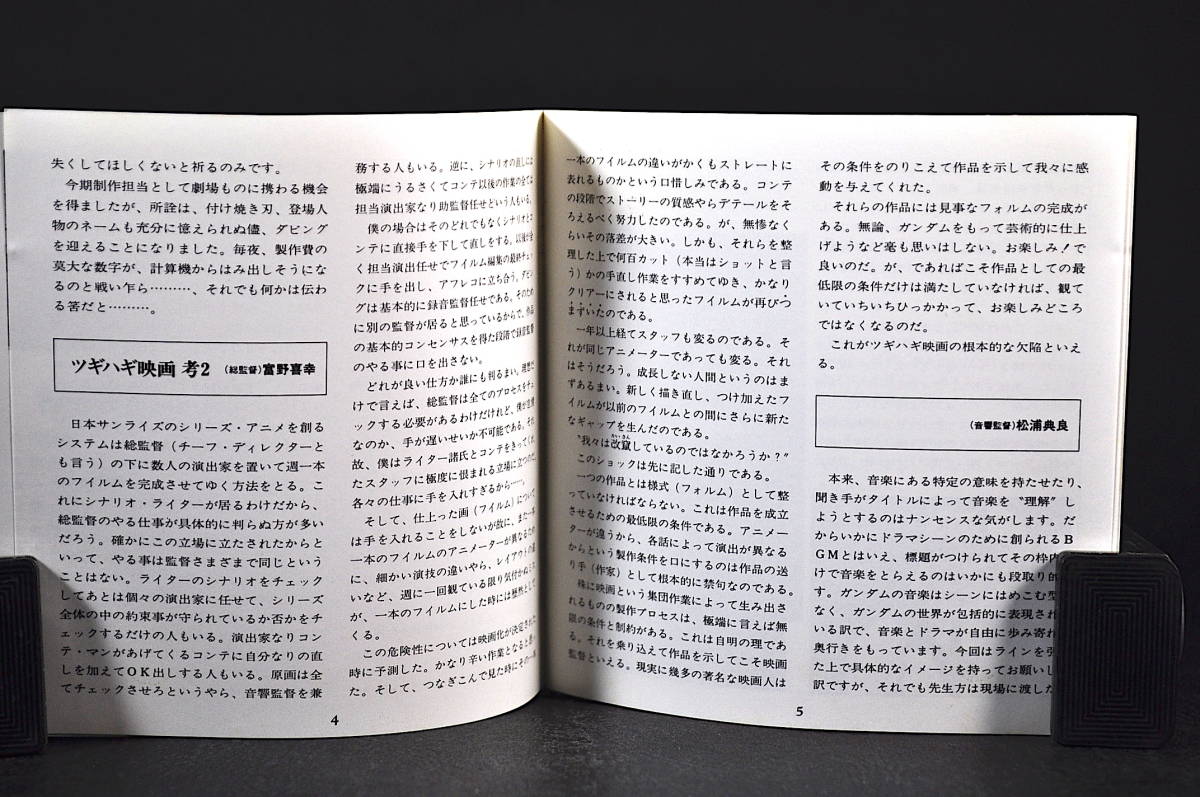 失くしてほしくないと祈るのみです。
今期制作担当として劇場ものに携わる機会
を得ましたが、所詮は、付け焼き刃、登場人
物のネームも充分に憶えられぬ儘、ダビング
を迎えることになりました。毎夜、製作費の
莫大な数字が、計算機からはみ出しそうにな
るのと戦い乍ら………、それでも何かは伝わ
る筈だと………。
ツギハギ映画 考2 (総監督)富野喜幸
日本サンライズのシリーズ・アニメを創る
システムは総監督(チーフ・ディレクターと
も言う)の下に数人の演出家を置いて週一本
のフイルムを完成させてゆく方法をとる。こ
れにシナリオ・ライターが居るわけだから、
総監督のやる仕事が具体的に判らぬ方が多い
だろう。確かにこの立場に立たされたからと
いって、やる事は監督さまざまで同じという
ことはない。ライターのシナリオをチェック
してあとは個々の演出家に任せて、シリーズ
全体の中の約束事が守られているか否かをチ
ェックするだけの人もいる。演出家なりコン
テ・マンがあげてくるコンテに自分なりの直
しを加えてOK出しする人もいる。原画は全
てチェックさせろというやら、音響監督を兼
務する人もいる。逆に、シナリオの直しには
極端にうるさくてコンテ以後の作業の全ては
担当演出家なり助監督任せという人もいる。
僕の場合はそのどれでもなくシナリオとコ
ンテに直接手を下して直しをする。以後が全
く担当演出任せでフイルム編集の最終チェッ
クに手を出し、アフレコに立ち合う。ダビン
グは基本的に録音監督任せである。そのため
に別の監督が居ると思っているからで、作品
の基本的コンセンサスを得た段階で録音監督
のやる事に口を出さない。
どれが良い仕方か誰にも判るまい。理想だ
けで言えば、総監督は全てのプロセスをチェ
ックする必要があるわけだけれど、僕が怠惰
なのか、手が遅いせいか不可能である。それ
故、僕はライター諸氏とコンテをきってくれ
たスタッフに極度に恨まれる立場に立つのだ。
各々の仕事に手を入れすぎるから……。
そして、仕上った画(フイルム)について
は手を入れることをしないが故に、また一本
一本のフイルムのアニメーターが異なるため
に、細かい演技の違いやら、レイアウトの違
いなど、週に一回観ている限り気付かぬ
が、一本のフイルムにした時には歴然として
くる。
この危険性については映画化が決定された
時に予測した。かなり辛い作業となると思っ
た。そして、つなぎこんで見た時にその一本
4
一本のフイルムの違いがかくもストレートに
表れるものかという口惜しみである。コンテ
の段階でストーリーの質感やらデテールをそ
ろえるべく努力したのである。が、無惨なく
らいその落差が大きい。しかも、それらを整
理した上で何百カット(本当はショットと言
う)かの手直し作業をすすめてゆき、かなり
クリアーにされると思ったフイルムが再びつ
まずいたのである。
一年以上経てスタッフも変るのである。そ
れが同じアニメーターであっても変る。それ
はそうだろう。成長しない人間というのはま
ずあるまい。新しく描き直し、つけ加えたフ
イルムが以前のフイルムとの間にさらに新た
なギャップを生んだのである。
〝我々は改竄しているのではなかろうか?〟
このショックは先に記した通りである。
一つの作品とは様式(フォルム)として整
っていなければならない。これは作品を成立
させるための最低限の条件である。アニメー
ターが違うから、各話によって演出が異なる
からという製作条件を口にするのは作品の送
り手(作家)として根本的に禁句なのである。
殊に映画という集団作業によって生み出さ
れるものの製作プロセスは、極端に言えば無
限の条件と制約がある。これは自明の理であ
る。それを乗り込えて作品を示してこそ映画
監督といえる。現実に幾多の著名な映画人は
その条件をのりこえて作品を示して我々に感
動を与えてくれた。
それらの作品には見事なフォルムの完成が
ある。無論、ガンダムをもって芸術的に仕上
げようなど毫も思いはしない。お楽しみ!で
良いのだ。が、であればこそ作品としての最
低限の条件だけは満たしていなければ、観て
いていちいちひっかかって、お楽しみどころ
ではなくなるのだ。
これがツギハギ映画の根本的な欠陥といえ
る。
(音響監督)松浦典良
本来、音楽にある特定の意味を持たせたり、
聞き手がタイトルによって音楽を〝理解〟し
ようとするのはナンセンスな気がします。だ
からいかにドラマシーンのために創られるB
GMとはいえ、標題がつけられてその枠内
けで音楽をとらえるのはいかにも段取り的
す。ガンダムの音楽はシーンにはめこむ型
なく、ガンダムの世界が包括的に表現され
いる訳で、音楽とドラマが自由に歩み寄れ
奥行きをもっています。今回はラインを引
た上で具体的なイメージを持ってお願いし
訳ですが、それでも先生方は現場に渡した
5